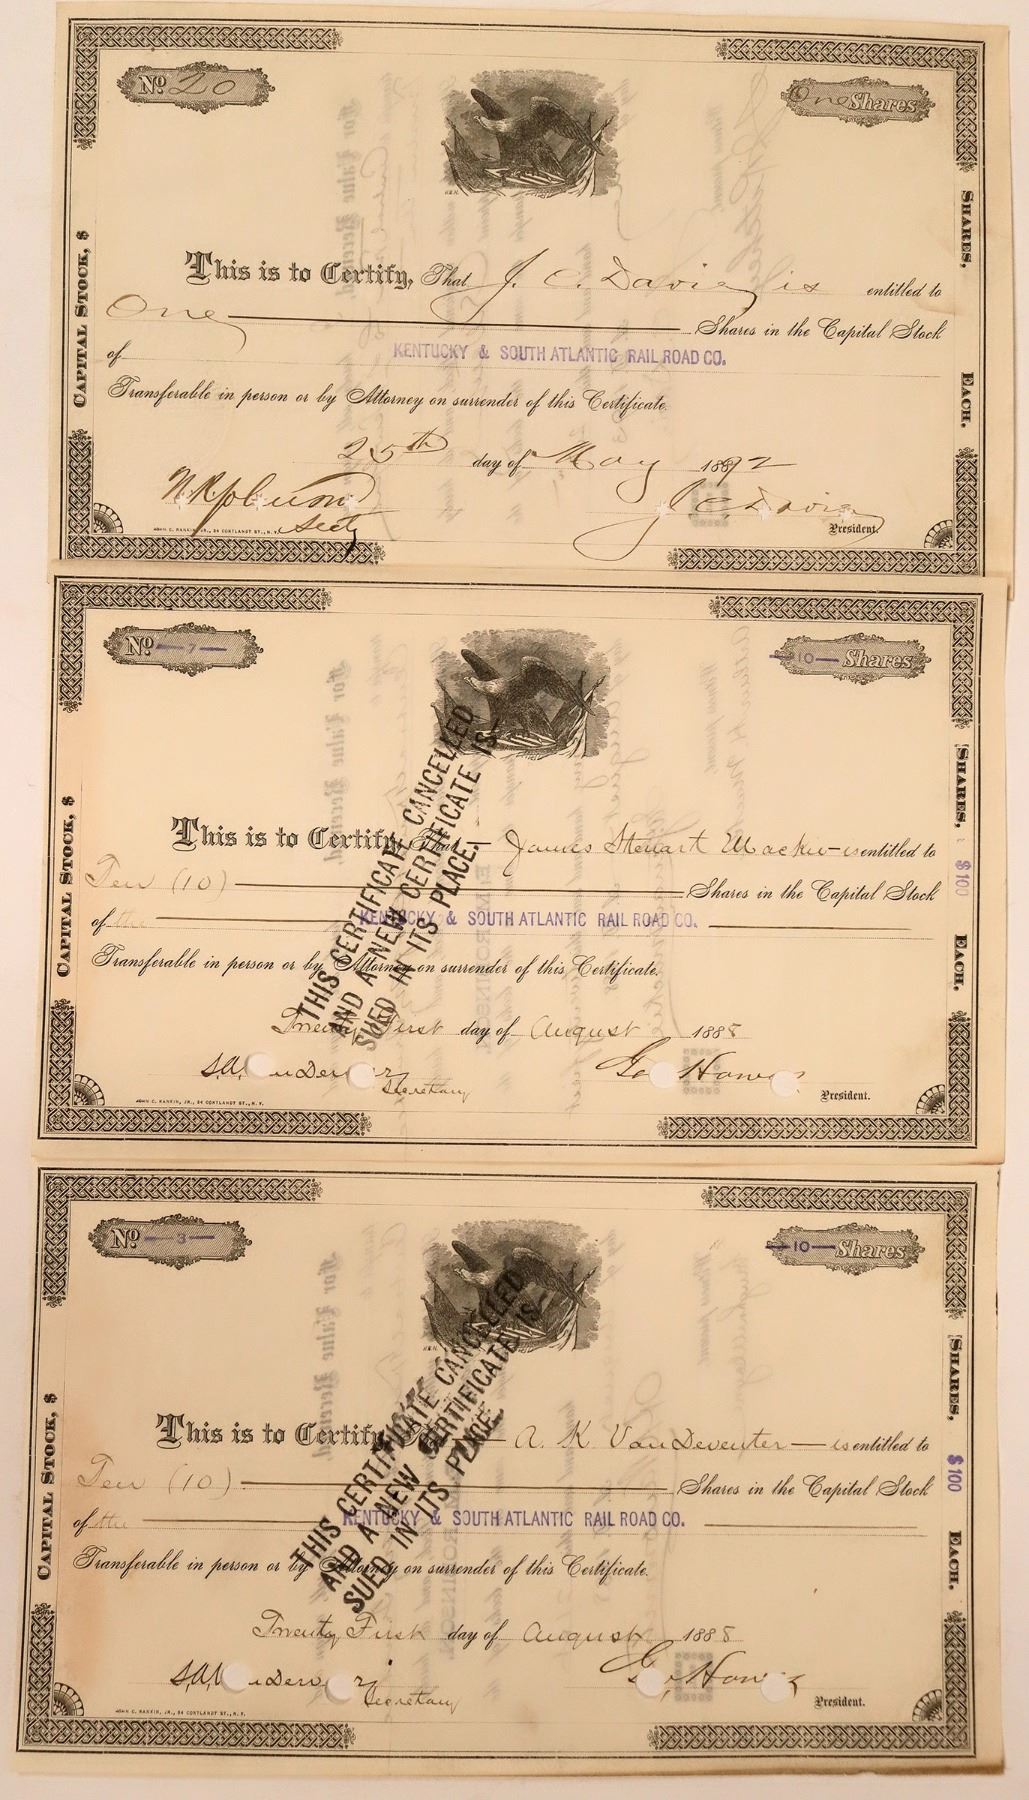 No 20
One Shares
This is to Certify, That J. C. Davie is entitled to
One Shares in the Capital Stock
of KENTUCKY & SOUTH ATLANTIC RAIL ROAD CO.
Transferable in person or by Attorney on surrender of this Certificate.
25th day of May 1892
Secty
J. C. Davie
President.
JOHN C. RANKIN, JR., 34 CORTLANDT ST., N.Y.
CAPITAL STOCK, $
SHARES, EACH.
No 7
10 Shares
This is to Certify, That James Steuart is entitled to
Ten (10) Shares in the Capital Stock
of the KENTUCKY & SOUTH ATLANTIC RAIL ROAD CO.
Transferable in person or by Attorney on surrender of this Certificate.
Twenty First day of August 1888
Secretary
President.
JOHN C. RANKIN, JR., 34 CORTLANDT ST., N.Y.
CAPITAL STOCK, $
SHARES, $100 EACH.
THIS CERTIFICATE CANCELLED
AND A NEW CERTIFICATE IS-
SUED IN ITS PLACE.
No 3
10 Shares
This is to Certify, A. K. VanDeventer is entitled to
Ten (10) Shares in the Capital Stock
of the KENTUCKY & SOUTH ATLANTIC RAIL ROAD CO.
Transferable in person or by Attorney on surrender of this Certificate.
Twenty First day of August 1888
Secretary
President.
JOHN C. RANKIN, JR., 34 CORTLANDT ST., N.Y.
CAPITAL STOCK, $
SHARES, $100 EACH.
THIS CERTIFICATE CANCELLED
AND A NEW CERTIFICATE IS-
SUED IN ITS PLACE.